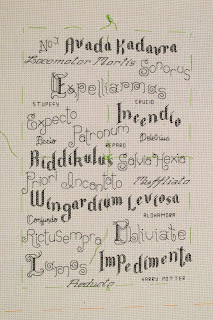 Nox Avada Kadavra
Locomotor Mortis Sonorus
Expelliarmus
STUPEFY CRUCIO
Incendio
Expecto
Patronum
Accio REPARO Deletrius
Riddikulus Salvia Hexia
Priori Incantato Muffliato
Wingardium Leviosa
Conjunctio ALOHAMORA
Rictusempra Obliviate
Lumos Impedimenta
Reducto HARRY POTTER